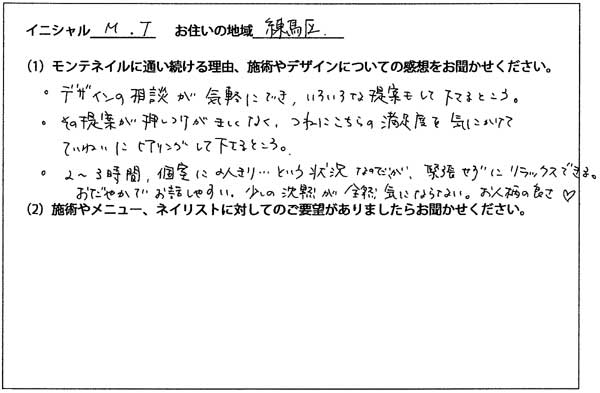 イニシャル M.T お住いの地域 練馬区.
(1) モンテネイルに通い続ける理由、施術やデザインについての感想をお聞かせください。
・デザインの相談が気軽にでき、いろいろな提案もして下さるところ。
・その提案が押しつけがましくなく、つねにこちらの満足度を気にかけて
ていねいにヒアリングして下さるところ。
・2〜3時間、個室に2人きり…という状況なのだが、緊張せずにリラックスできる。
おだやかでお話しやすい。少しの沈黙が全然気にならない。お人柄の良さ♡
(2) 施術やメニュー、ネイリストに対してのご要望がありましたらお聞かせください。